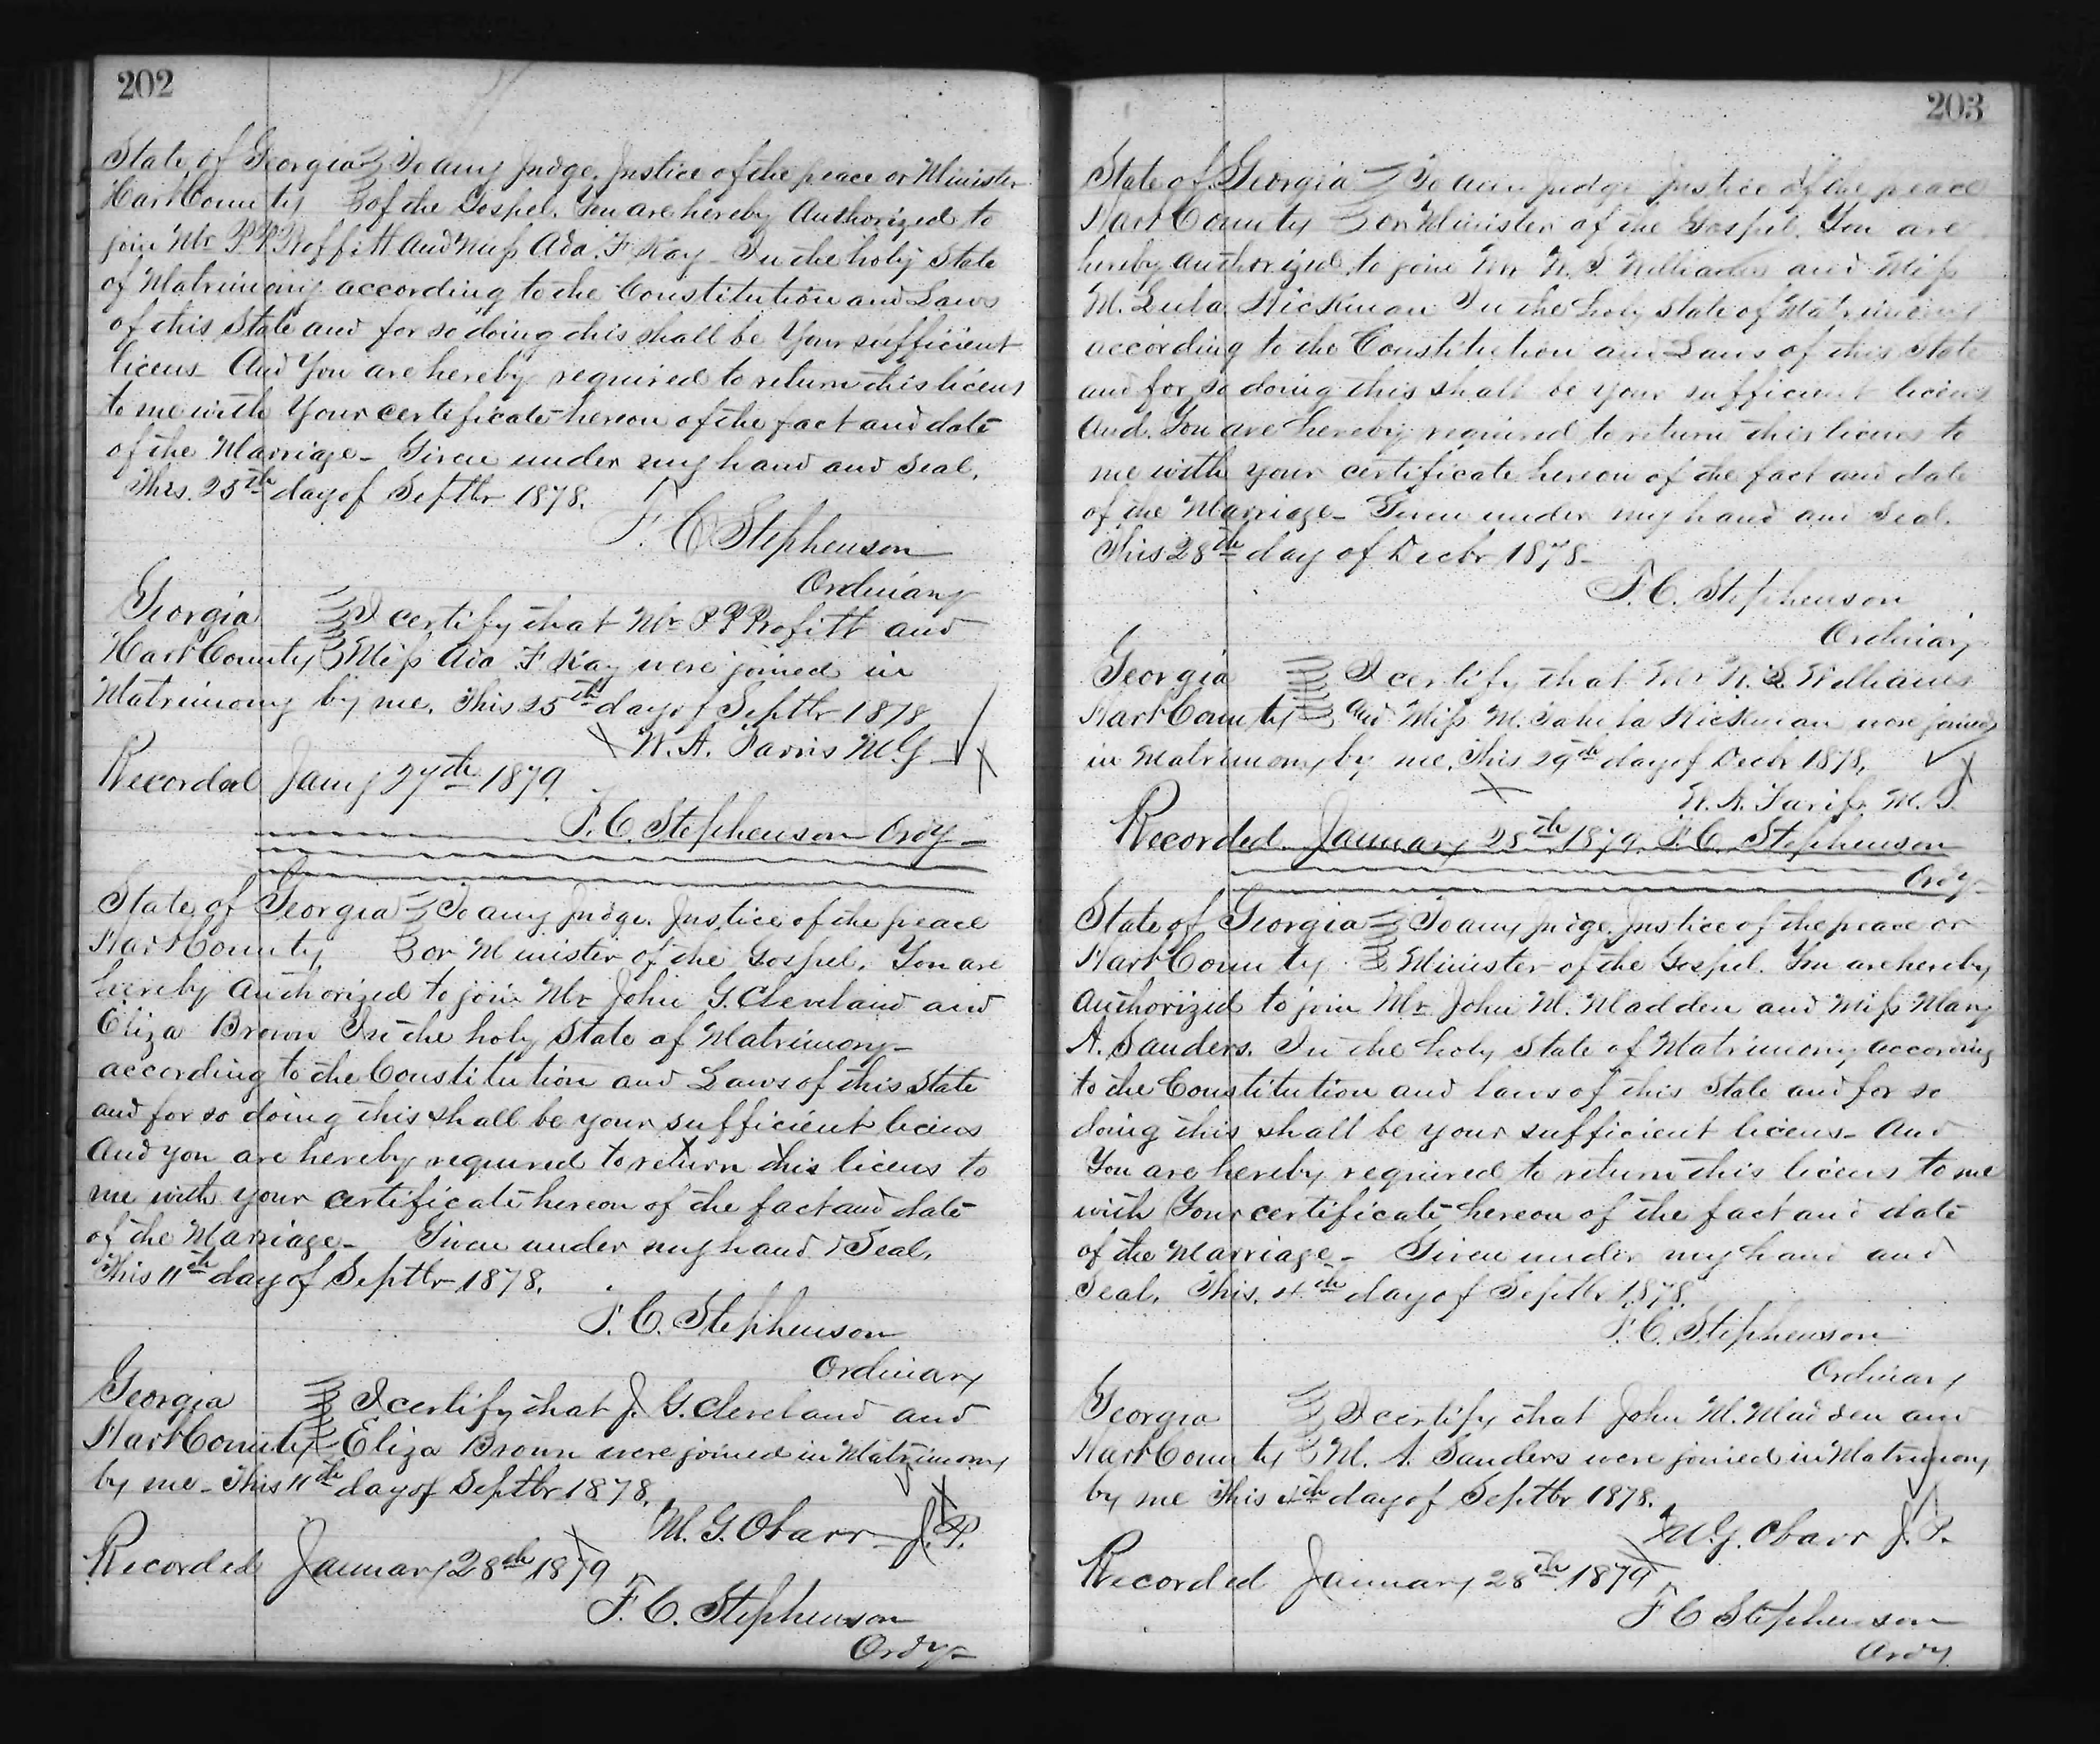 202
State of Georgia To any Judge, Justice of the peace or Minister
Hart County of the Gospel. You are hereby Authorized to
join Mr P. P. Proffitt and Miss Ada. F Kay - In the holy State
of Matrimony according to the Constitution and Laws
of this State and for so doing this shall be Your sufficient
licens - And You are hereby required to return this licens
to me with Your certificate hereon of the fact and date
of the Marriage - Given under my hand and seal.
This 25th day of Septbr 1878.
F. C. Stephenson
Ordinary
Georgia I certify that Mr P P Profitt and
Hart County Miss Ada F Kay were joined in
Matrimony by me. This 25th day of Septbr 1878
W. A. Farris M G
Recorded Jany 27th 1879.
F. C. Stephenson Ordy -
State of Georgia To any Judge, Justice of the peace
Hart County or Minister of the Gospel. You are
hereby authorized to join Mr John G. Cleveland and
Eliza Brown In the holy State of Matrimony -
according to the Constitution and Laws of this State
and for so doing this shall be your sufficient licens
And you are hereby required to return this licens to
me with your certificate hereon of the fact and date
of the Marriage - Given under my hand & Seal,
This 11th day of Septbr 1878.
F. C. Stephenson
Ordinary
Georgia I certify that J. G. Cleveland and
Hart County Eliza Brown were joined in Matrimony
by me - This 11th day of Septbr 1878.
M. G. Obarr - J. P.
Recorded January 28th 1879
F. C. Stephenson
Ordy -
203
State of Georgia To any Judge Justice of the peace
Hart County or Minister of the Gospel. You are
hereby authorized to join Mr W. S. Williams and Miss
M. Hickman In the holy State of Matrimony
according to the Constitution and Laws of this State
and for so doing this shall be your sufficient licens
And. You are hereby required to return this licens to
me with your certificate hereon of the fact and date
of the Marriage - Given under my hand and Seal.
This 28th day of Decbr 1878 -
F. C. Stephenson
Ordinary
Georgia I certify that Mr W. S. Williams
Hart County and Miss M. Hickman were joined
in Matrimony by me. This 29th day of Decbr 1878,
W. A. Faris. M. G.
Recorded January 28th 1879. F. C. Stephenson
Ordy -
State of Georgia To any Judge, Justice of the peace or
Hart County Minister of the Gospel. You are hereby
authorized to join Mr John M. Madden and Miss Mary
A. Sanders. In the holy State of Matrimony according
to the Constitution and laws of this State and for so
doing this shall be your sufficient licens - And
You are hereby required to return this licens to me
with Your certificate hereon of the fact and date
of the Marriage - Given under my hand and
Seal, This. 4th day of Septbr 1878.
F. C. Stephenson
Ordinary
Georgia I certify that John M. Madden and
Hart County M. A. Sanders were joined in Matrimony
by me This 4th day of Septbr 1878.
M. G. Obarr J. P.
Recorded January 28th 1879
F C Stephenson
Ordy